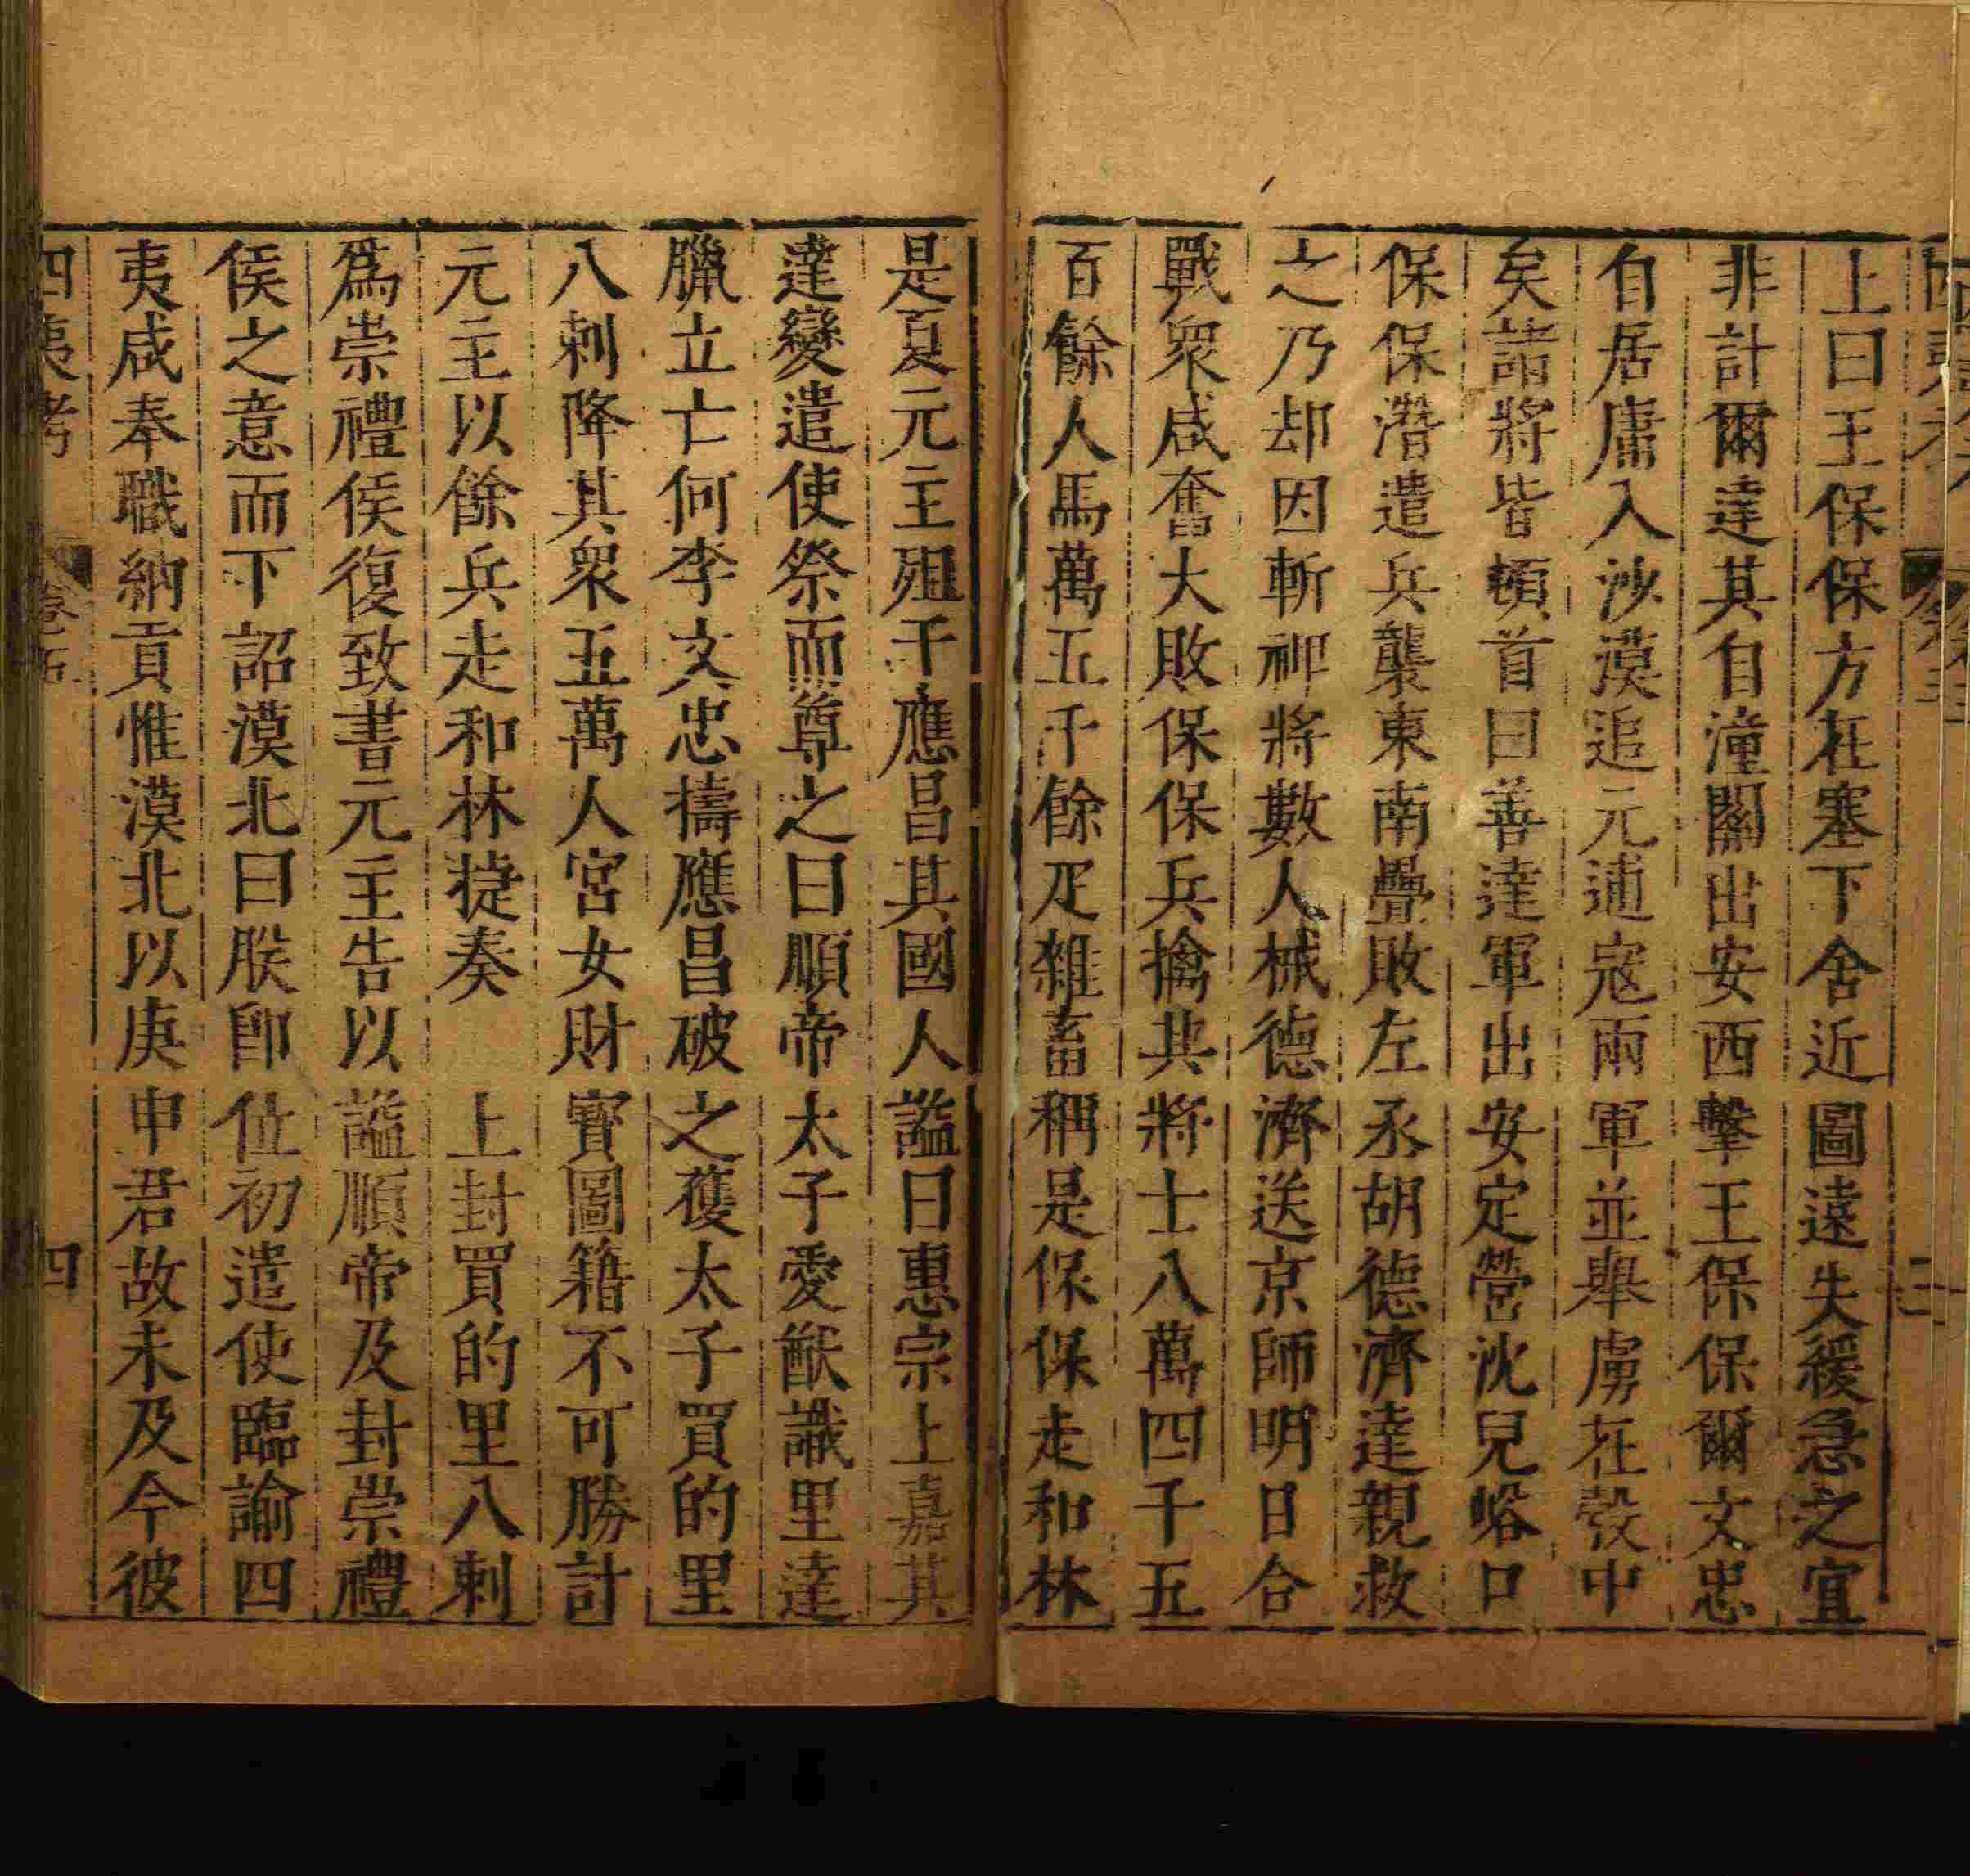 上曰王保保方在塞下舍近圖遠失緩急之宜
非計爾達其自潼關出安西擊王保保爾文忠
自居庸入沙漠追元逋寇兩軍並舉虜在彀中
矣諸將皆頓首曰善達軍出安定營沈兒峪口
保保潛遣兵襲東南壘敗左丞胡德濟達親救
之乃却因斬裨將數人械德濟送京師明日合
戰衆咸奮大敗保保兵擒其將士八萬四千五
百餘人馬萬五千餘疋雜畜稱是保保走和林
是夏元主殂于應昌其國人謚曰惠宗上嘉其
達變遣使祭而尊之曰順帝太子愛猷識里達
臘立亡何李文忠擣應昌破之獲太子買的里
八剌降其衆五萬人宮女財寶圖籍不可勝計
元主以餘兵走和林捷奏　上封買的里八剌
爲崇禮侯復致書元主告以謚順帝及封崇禮
侯之意而下詔漠北曰朕卽位初遣使臨諭四
夷咸奉職納貢惟漠北以庚申君故未及今彼
四夷考　卷五　四